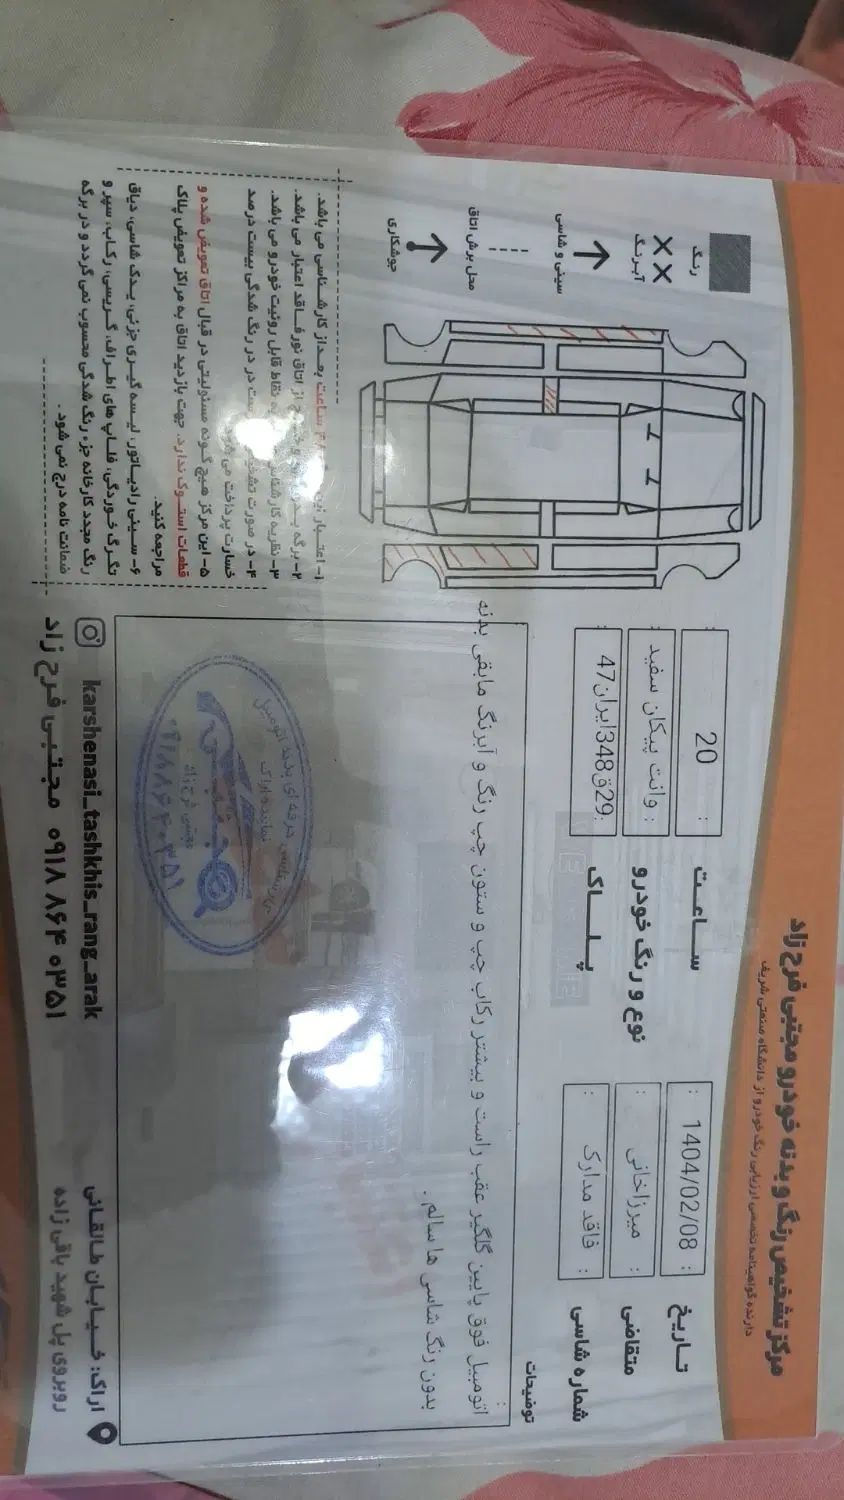 مرکز تشخیص رنگ و بدنه خودرو مجتبی فرح زاد
دارنده گواهینامه تخصصی ارزیابی رنگ خودرو از دانشگاه صنعتی شریف
تاریخ : 1404/02/08 :
متقاضی : میرزاخانی :
شماره شاسی : فاقد مدارک :
ساعت : 20 :
نوع و رنگ خودرو : وانت پیکان سفید :
پلاک : 29ق348ایران47 :
توضیحات :
اتومبیل فوق پایین گلگیر عقب راست و بیشتر رکاب چپ و ستون چپ رنگ و آبرنگ مابقی بدنه
بدون رنگ شاسی ها سالم .
رنگ
آبرنگ
سینی و شاسی
محل برش اتاق
جوشکاری
۱- اعتبار این ساعت بعد از کارشناسی می باشد.
۲- برگه بدون از اتاق نور فاقد اعتبار می باشد.
۳- نظریه کارشناس به نقاط قابل روئیت خودرو می باشد.
۴- در صورت در رنگ شدگی بیست درصد
خسارت پرداخت می
۵- این مرکز هیچ گونه مسئولیتی در قبال اتاق تعویض شده و
قطعات استوک ندارد. جهت بازدید اتاق به مراکز تعویض پلاک
مراجعه کنید.
۶- سینی رادیاتور، لیسه گیری جزئی، یدک شاسی، دیاق
تگرگ خوردگی، فلاپ های اطراف، گریسی، رکاب، سپر و
رنگ مجدد کارخانه جزء رنگ شدگی محسوب نمی گردد و در برگه
ضمانت نامه درج نمی شود .
کارشناسی حرفه ای بدنه اتومبیل
نماینده اراک
مجتبی فرح زاد
۰۹۱۸۸۶۴۰۳۵۱
karshenasi_tashkhis_rang_arak
مجتبی فرح زاد ۰۹۱۸ ۸۶۴ ۰۳۵۱
اراک: خیابان طالقانی
روبروی پل شهید باقی زاده